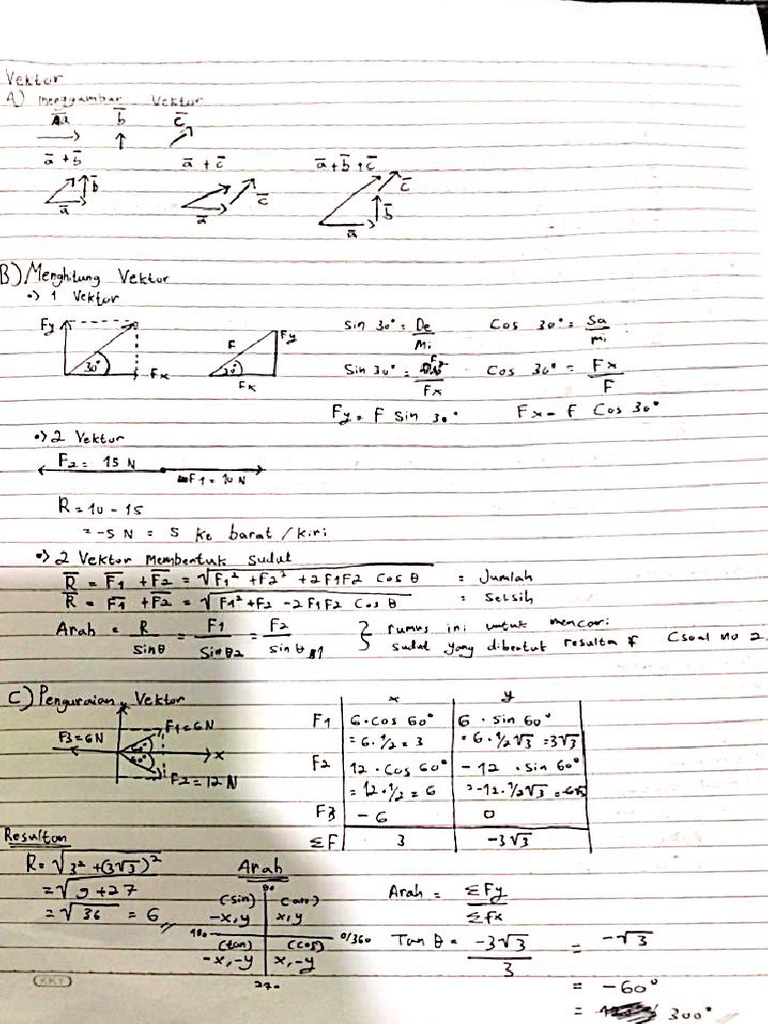 Vektor
A) Menggambar Vektor
a̅ b̅ c̅
a̅ + b̅ a̅ + c̅ a̅ + b̅ + c̅
b̅ a̅ c̅ a̅ c̅ b̅ a̅
B) Menghitung Vektor
•> 1 Vektor
Fy 30° Fx F Fy 30° Fx Sin 30° = De/Mi Cos 30° = Sa/Mi
Sin 30° = Fy/Fx Cos 30° = Fx/F
Fy = F Sin 30° Fx = F Cos 30°
•> 2 Vektor
F2 = 15 N F1 = 10 N
R = 10 - 15
= -5 N = 5 ke barat / kiri
•> 2 Vektor Membentuk Sudut
R̅ = F̅1 + F̅2 = √F1² + F2² + 2 F1 F2 Cos θ = Jumlah
R̅ = F̅1 + F̅2 = √F1² + F2 - 2 F1 F2 Cos θ = Selsih
Arah = R/Sinθ = F1/Sin θ2 = F2/Sin θ1 } rumus ini untuk mencari
sudut yang dibentuk resultan Csoal no 2
C) Penguraian Vektor
x y
F3 = 6N F1 = 6N x 60° F2 = 12 N
F1 6 . Cos 60° 6 . Sin 60°
= 6 . 1/2 = 3 = 6 . 1/2 √3 = 3√3
F2 12 . Cos 60° - 12 . Sin 60°
= 12 . 1/2 = 6 = -12 . 1/2 √3 = -6√3
F3 - 6 0
ΣF 3 -3√3
Resultan
R = √3² + (3√3)²
= √9 + 27
= √36 = 6
Arah
90
(sin) -x, y x, y
180 0/360
(tan) -x, -y (cos) x, -y
270
Arah = ΣFy/ΣFx
Tan θ = -3√3/3 = -√3
= -60°
= 300°
KKY